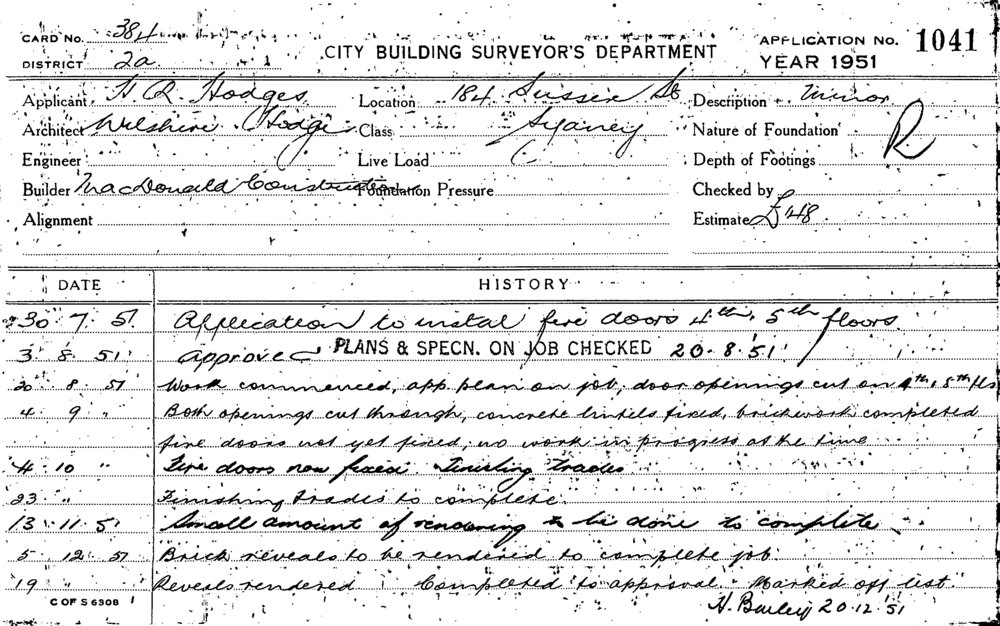 CARD No. 384
CITY BUILDING SURVEYOR'S DEPARTMENT
APPLICATION No. 1041
DISTRICT 2a
YEAR 1951
Applicant H. R. Hodges Location 184 Sussex St Description minor
Architect Wilshire & Hodges Class Sydney Nature of Foundation R
Engineer Live Load Depth of Footings
Builder MacDonald Construction Foundation Pressure Checked by
Alignment Estimate £48
DATE HISTORY
30 7 51 Application to instal fire doors 4th, 5th floors
3 8 51 Approved PLANS & SPECN. ON JOB CHECKED 20.8.51
20 8 51 Work commenced, app plan on job, door openings cut on 4th, 5th fls
4 9 " Both openings cut through, concrete lintels fixed, brickwork completed
fire doors not yet fixed, no work in progress at the time
4 10 " Fire doors now fixed Finishing trades
23 " Finishing trades to complete
13 11 51 Small amount of rendering to be done to complete
5 12 51 Brick reveals to be rendered to complete job
19 " Reveals rendered Completed to approval Marked off list
C OF S 630B
H. Bailey 20.12.51